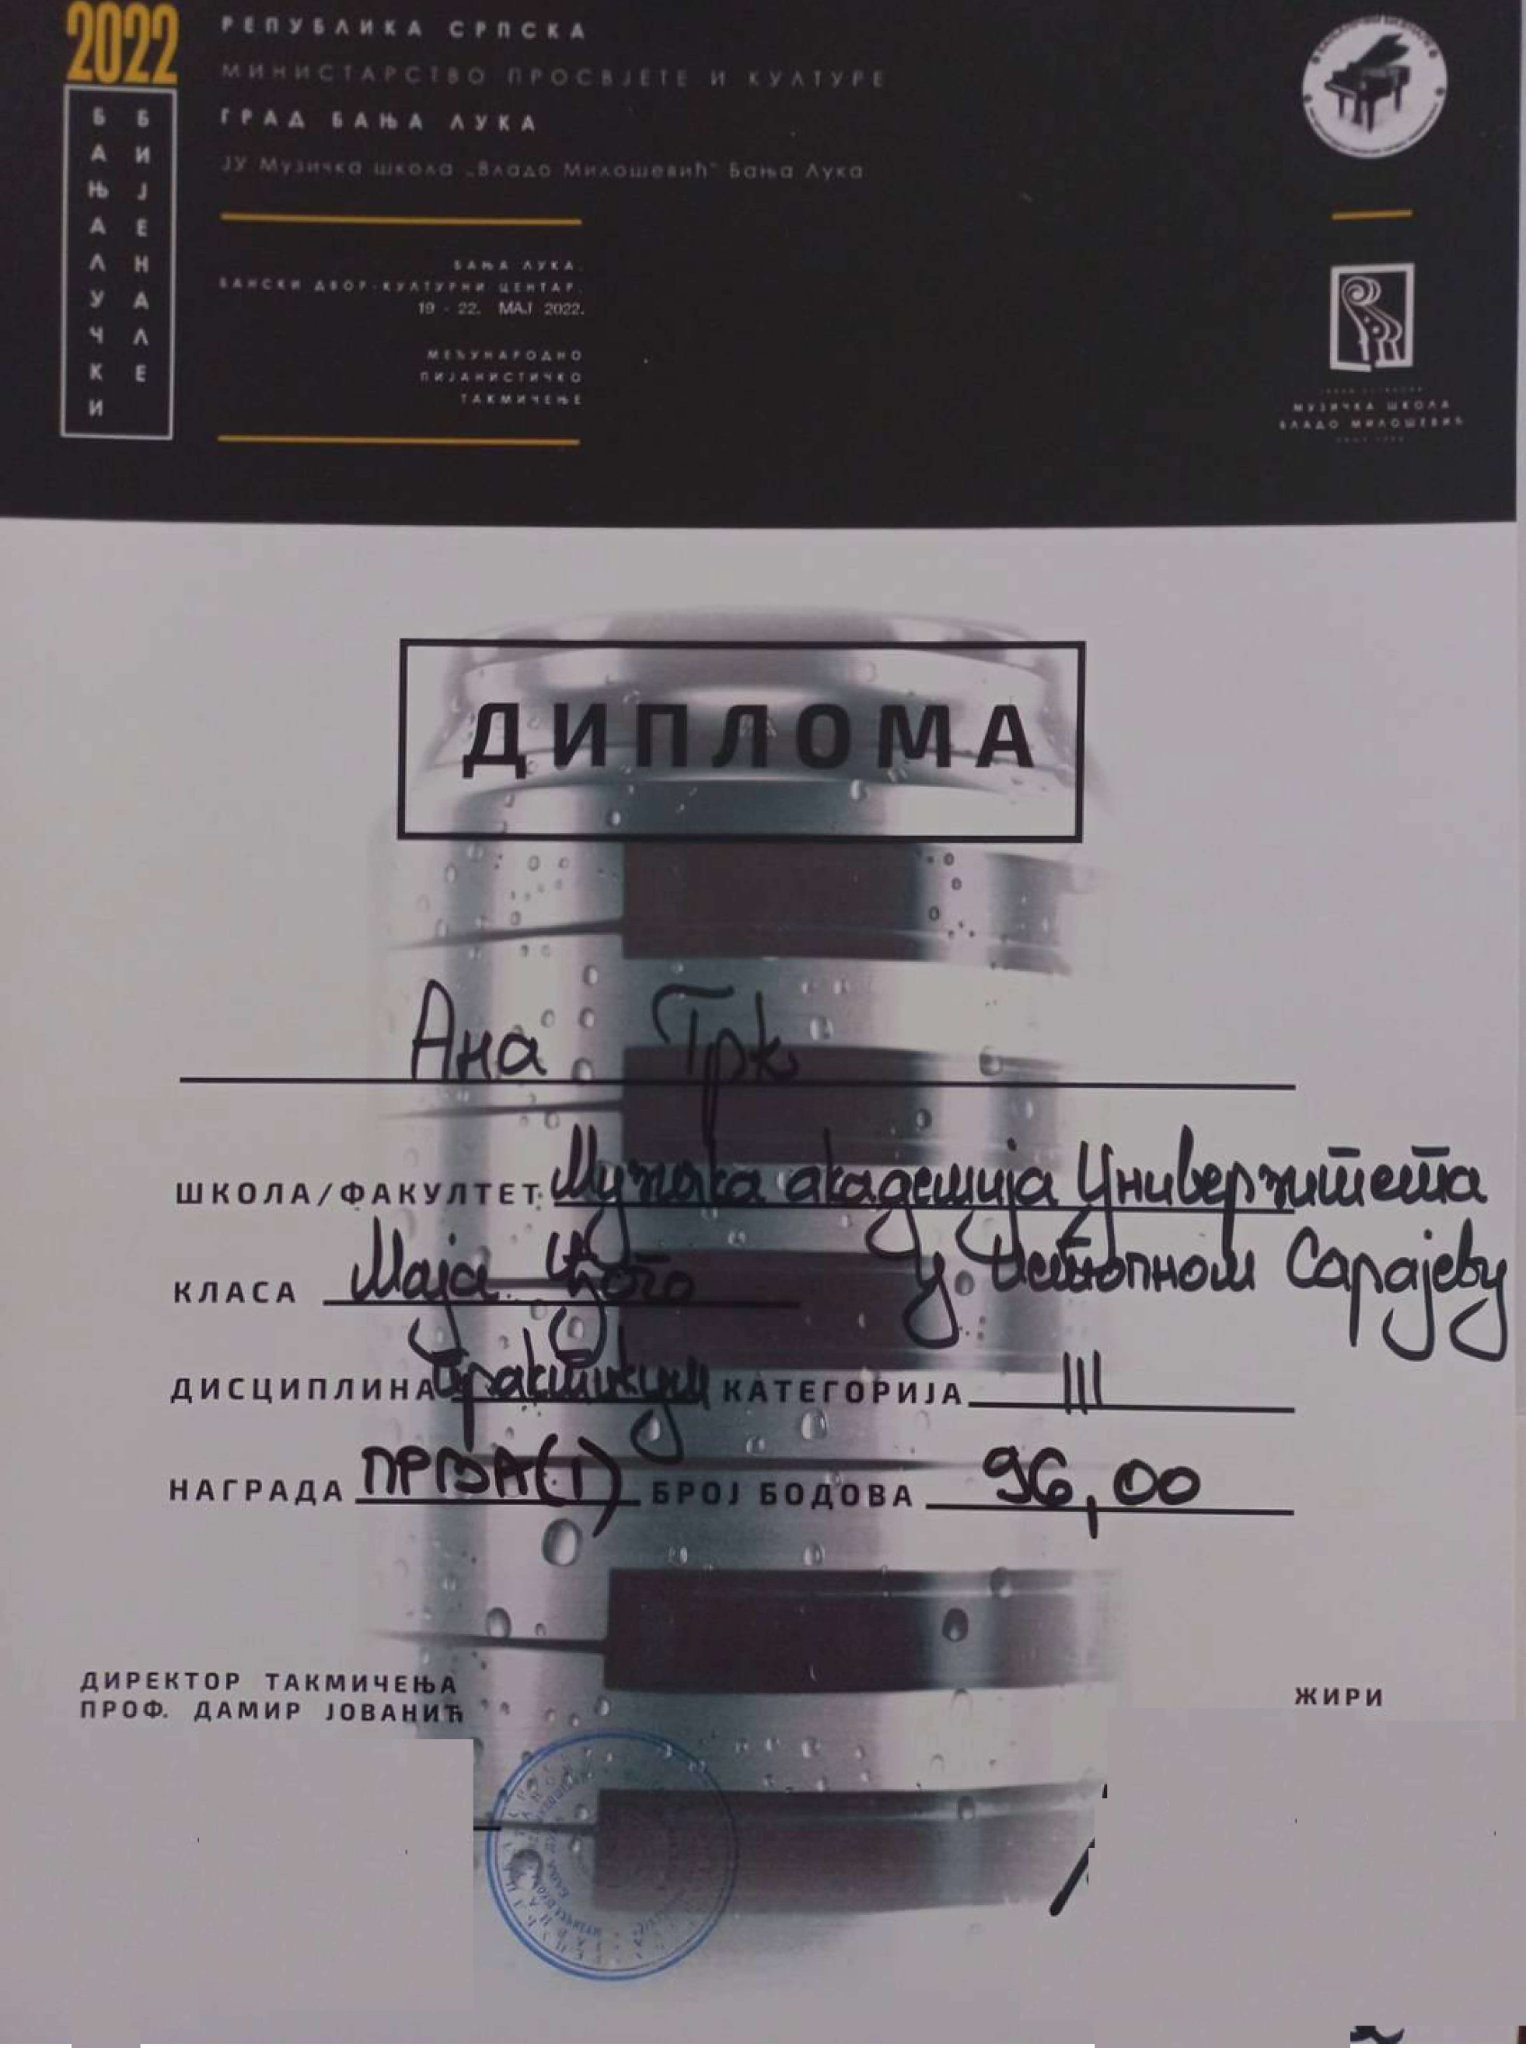 2022
БАЊАЛУЧКИ
БИЈЕНАЛЕ
РЕПУБЛИКА СРПСКА
МИНИСТАРСТВО ПРОСВЈЕТЕ И КУЛТУРЕ
ГРАД БАЊА ЛУКА
ЈУ Музичка школа „Владо Милошевић" Бања Лука
БАЊА ЛУКА,
БАНСКИ ДВОР-КУЛТУРНИ ЦЕНТАР,
19 - 22. МАЈ 2022.
МЕЂУНАРОДНО
ПИЈАНИСТИЧКО
ТАКМИЧЕЊЕ
МУЗИЧКА ШКОЛА
ВЛАДО МИЛОШЕВИЋ
ДИПЛОМА
Ана Трк
ШКОЛА/ФАКУЛТЕТ: Музичка академија Универзитета
у Источном Сарајеву
КЛАСА Маја
ДИСЦИПЛИНА КАТЕГОРИЈА III
НАГРАДА ПРВА(I) БРОЈ БОДОВА 96,00
ДИРЕКТОР ТАКМИЧЕЊА
ПРОФ. ДАМИР ЈОВАНИЋ
ЖИРИ